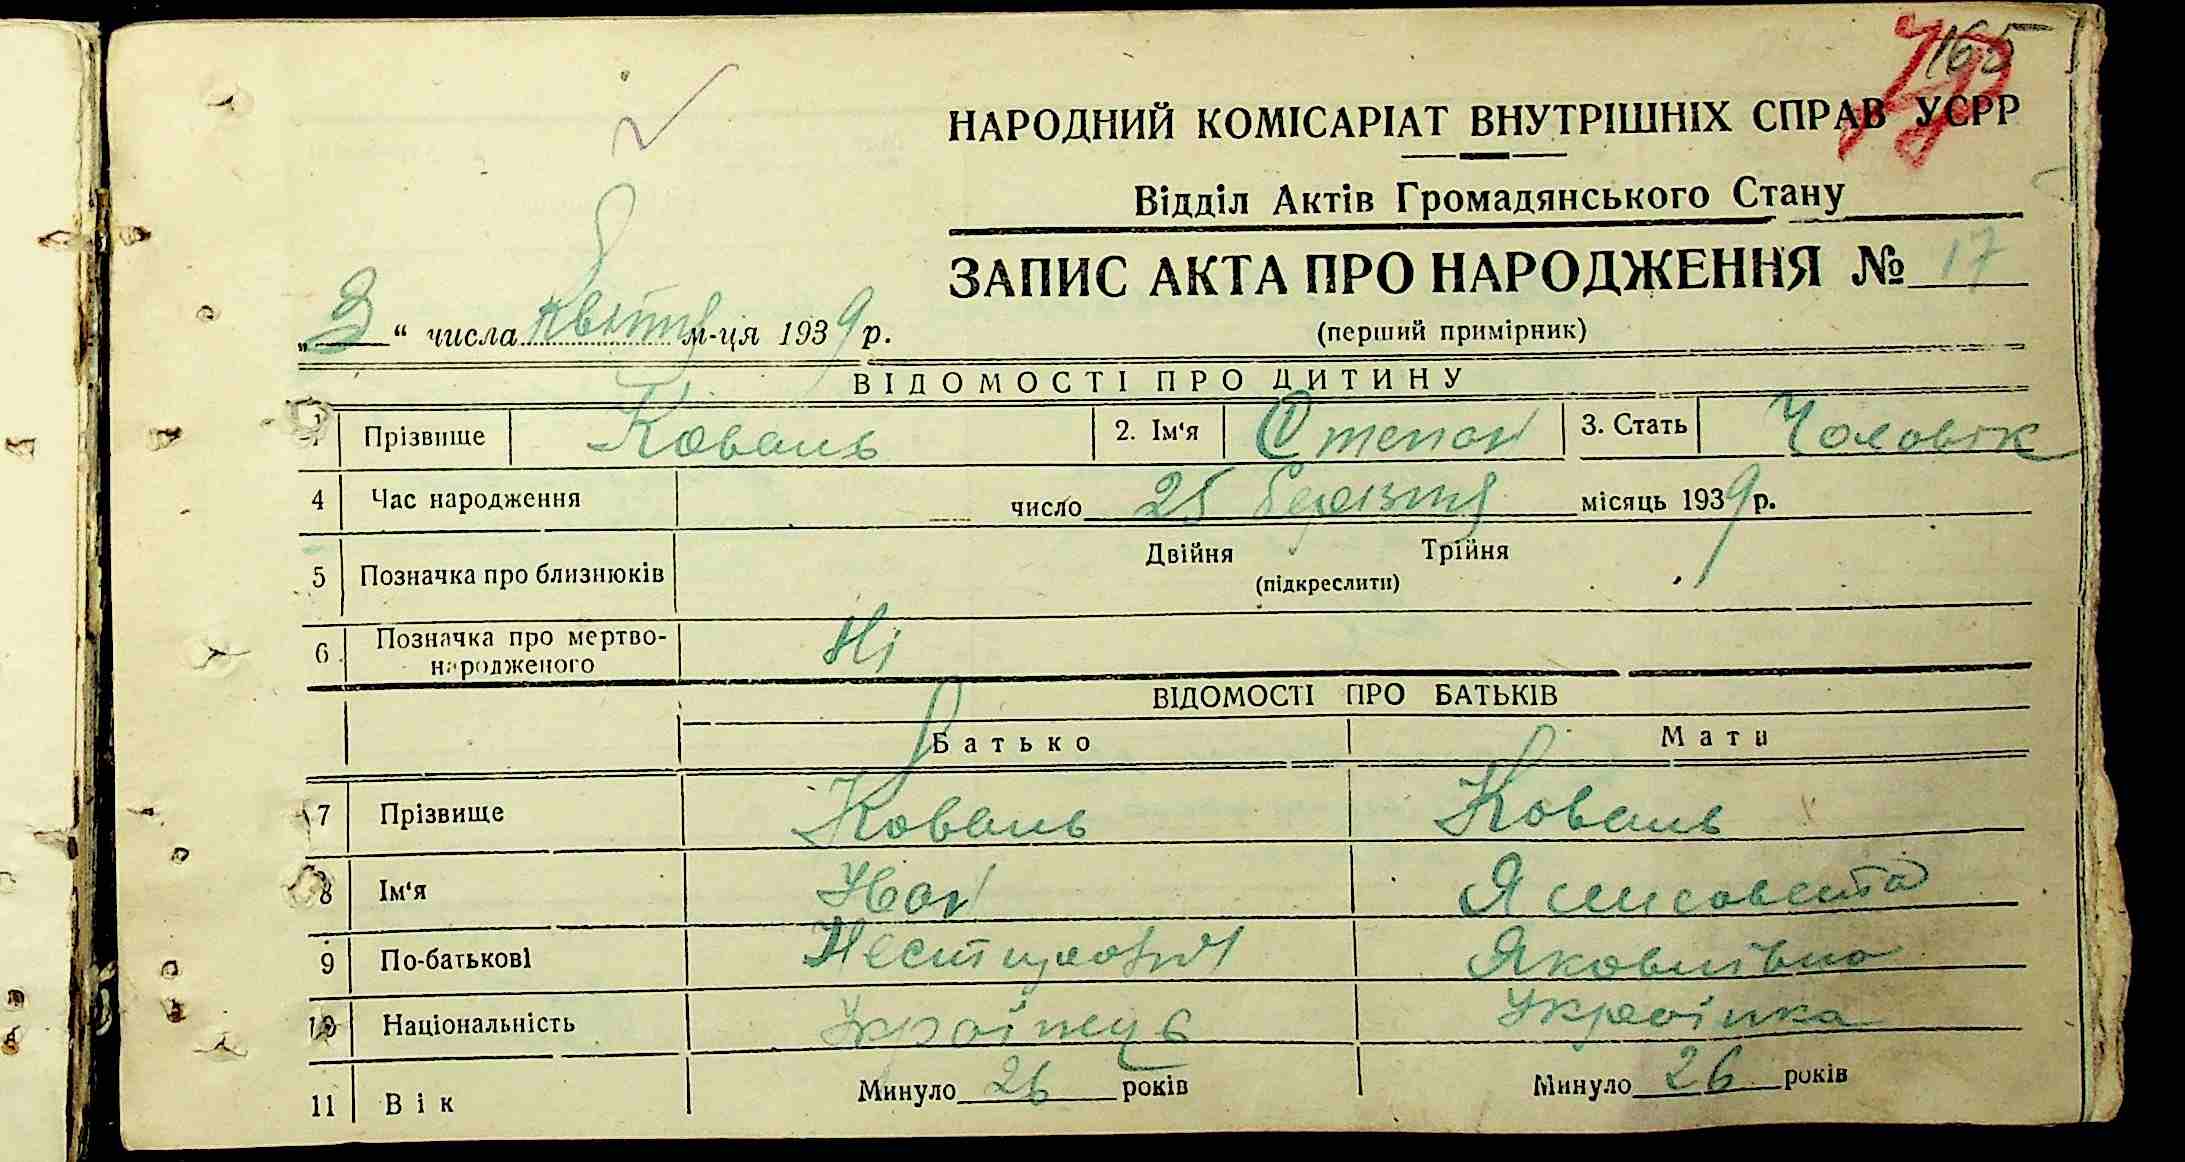 165
НАРОДНИЙ КОМІСАРІАТ ВНУТРІШНІХ СПРАВ УСРР
Відділ Актів Громадянського Стану
ЗАПИС АКТА ПРО НАРОДЖЕННЯ № 17
(перший примірник)
„3“ числа квітня м-ця 1939 р.
ВІДОМОСТІ ПРО ДИТИНУ
1 Прізвище Коваль 2. Ім‘я Степан 3. Стать Чоловік
4 Час народження число 25 березня місяць 1939 р.
5 Позначка про близнюків Двійня Трійня
(підкреслити)
6 Позначка про мертво-
народженого Ні
ВІДОМОСТІ ПРО БАТЬКІВ
Батько Мати
7 Прізвище Коваль Коваль
8 Ім‘я Іван
9 По-батькові Яковлівна
10 Національність Українець Українка
11 Вік Минуло 26 років Минуло 26 років